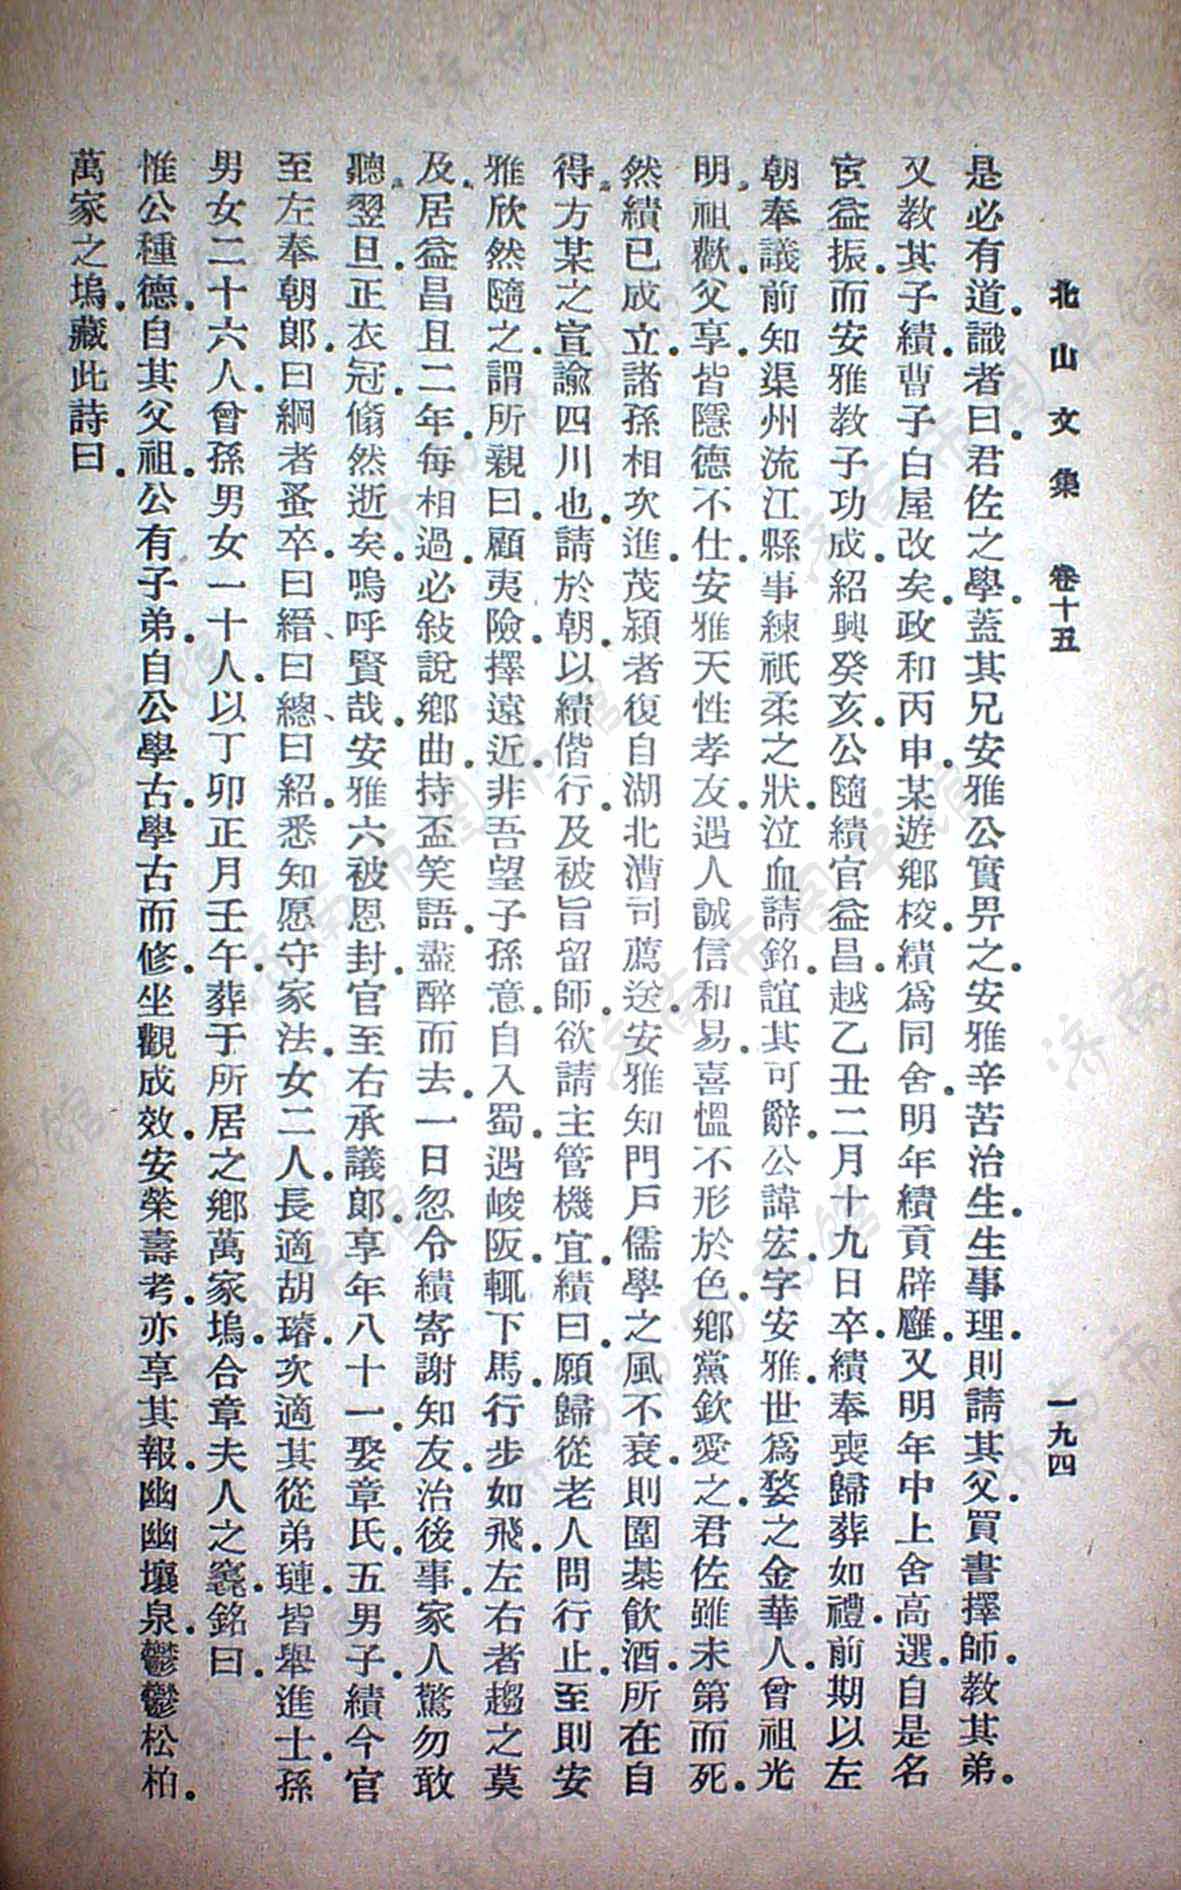 北山文集　卷十五　一九四
是必有道。識者曰。君佐之學。蓋其兄安雅公實畀之。安雅辛苦治生。生事理。則請其父。買書擇師。教其弟。
又教其子績。曹子白屋改矣。政和丙申。某遊鄉校。績爲同舍。明年績貢辟廱。又明年中上舍高選。自是名
宦益振。而安雅教子功成。紹興癸亥。公隨績官益昌。越乙丑二月十九日卒。績奉喪歸葬如禮。前期以左
朝奉議前知渠州流江縣事練祗柔之狀。泣血請銘。誼其可辭。公諱宏。字安雅。世爲婺之金華人。曾祖光
明。祖歡。父享。皆隱德不仕。安雅天性孝友。遇人誠信和易。喜慍不形於色。鄉黨欽愛之。君佐雖未第而死。
然績已成立。諸孫相次進。茂潁者復自湖北漕司薦送。安雅知門戶儒學之風不衰。則圍棊飲酒。所在自
得。方某之宣諭四川也。請於朝。以績偕行。及被旨留師。欲請主管機宜。績曰。願歸從老人問行止。至則安
雅欣然隨之。謂所親曰。顧夷險。擇遠近。非吾望子孫意。自入蜀。遇峻阪。輒下馬。行步如飛。左右者趨之莫
及。居益昌且二年。每相過。必敍說鄉曲。持盃笑語。盡醉而去。一日忽令績寄謝知友。治後事。家人驚勿敢
聽。翌旦。正衣冠。翛然逝矣。嗚呼賢哉。安雅六被恩封。官至右承議郎。享年八十一。娶章氏。五男子。績今官
至左奉朝郎。曰綱者蚤卒。曰縉、曰總、曰紹。悉知愿守家法。女二人。長適胡璿。次適其從弟璉。皆舉進士。孫
男女二十六人。曾孫男女一十人。以丁卯正月壬午。葬于所居之鄉萬家塢。合章夫人之竁。銘曰。
惟公種德。自其父祖。公有子弟。自公學古。學古而修。坐觀成效。安榮壽考。亦享其報。幽幽壤泉。鬱鬱松柏。
萬家之塢。藏此詩曰。